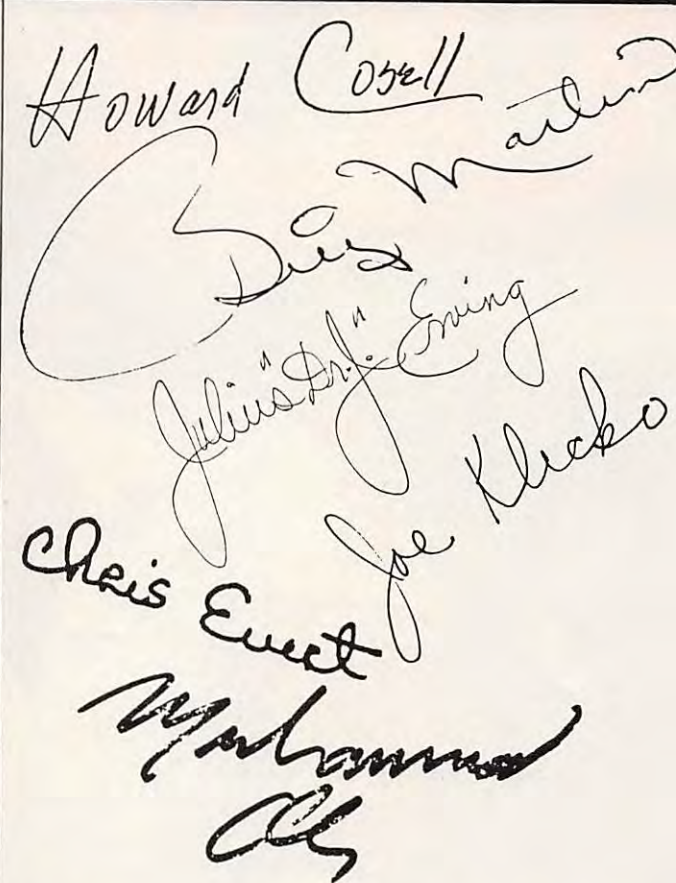 Howard Cosell
Billy Martin
Julius "Dr. J." Erving
Joe Klecko
Chris Evert
Muhammad
Ali